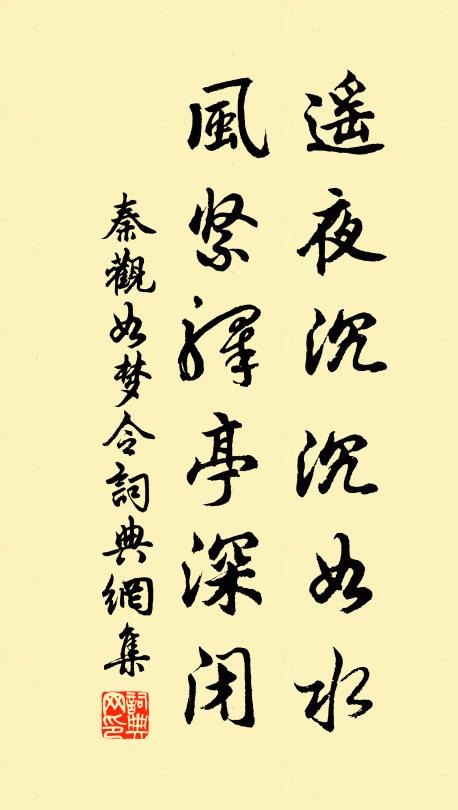 遥夜沉沉如水
風緊驛亭深闭
秦觀如梦令詞典網集
詞典网印